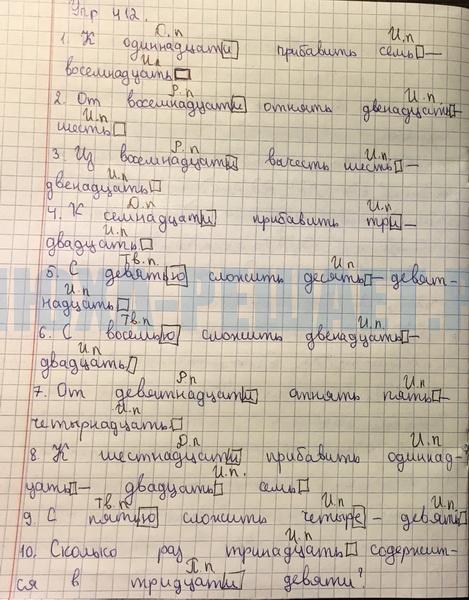 Упр 412.
Д.п И.п.
1. К одиннадцати прибавить семь –
И.п
восемнадцать
Р.п И.п.
2. От восемнадцати отнять двенадцать –
И.п.
шесть
Р.п И.п.
3. Из восемнадцати вычесть шесть –
И.п.
двенадцать
Д.п. И.п.
4. К семнадцати прибавить три –
И.п.
двадцать
Тв.п И.п.
5. С девятью сложить десять – девят-
И.п
надцать
Тв.п И.п.
6. С восемью сложить двенадцать –
И.п
двадцать
Р.п И.п
7. От девятнадцати отнять пять –
И.п
четырнадцать
Д.п И.п
8. К шестнадцати прибавить одиннад-
И.п.
цать – двадцать семь
Тв.п И.п И.п.
9. С пятью сложить четыре – девять
И.п
10. Сколько раз тринадцать содержит-
П.п
ся в тридцати девяти?